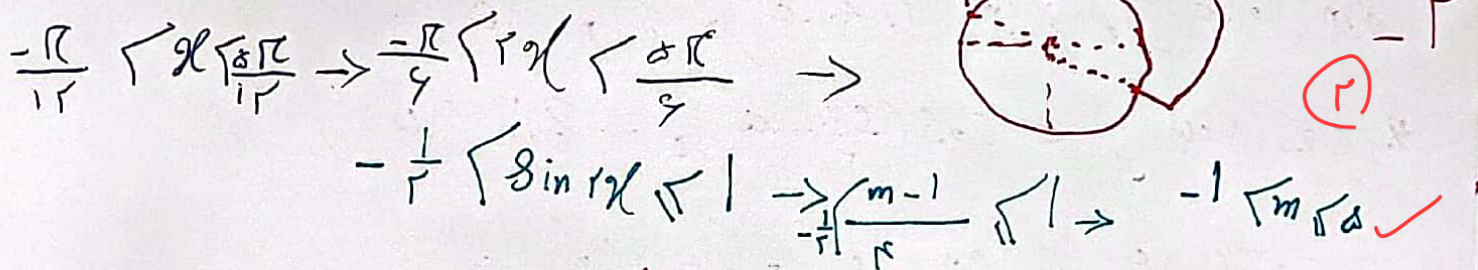 -π/۱۲ < x < ۵π/۱۲ → -π/۶ < ۲x < ۵π/۶ →
۲
-۱/۲ < Sin ۲x ≤ ۱ → -۱/۲ < (m-۱)/۴ ≤ ۱ → -۱ < m ≤ ۵ ✓